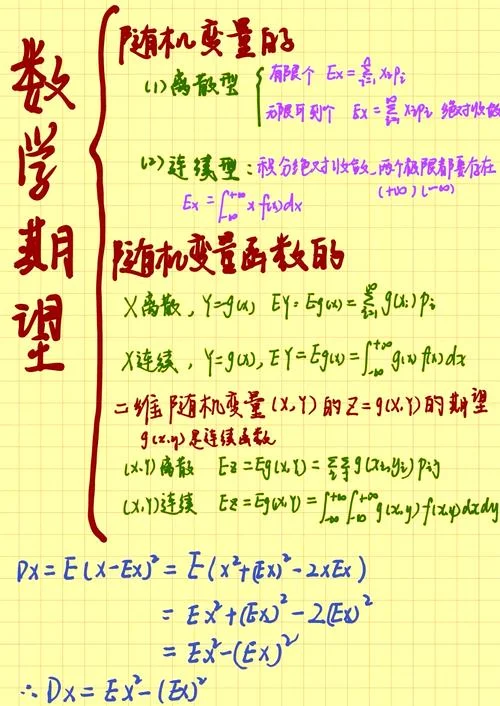 数学期望
随机变量的
(1)离散型 有限个 Ex=∑ᵢ₌₁ⁿ xᵢpᵢ
无限可列个 Ex=∑ᵢ₌₁^∞ xᵢpᵢ 绝对收敛
(2)连续型:积分绝对收敛,两个极限都要存在
(+∞)(-∞)
Ex=∫₋∞^+∞ x f(x)dx
随机变量函数的
X离散,Y=g(x) EY=Eg(x)=∑ᵢ₌₁^∞ g(xᵢ)pᵢ
X连续,Y=g(x),EY=Eg(x)=∫₋∞^+∞ g(x)f(x)dx
二维随机变量(X,Y)的Z=g(X,Y)的期望
g(x,y)是连续函数
(X,Y)离散 Ez=Eg(X,Y)=∑ᵢ∑ⱼ g(xᵢ,yᵢ)pᵢⱼ
(X,Y)连续 Ez=Eg(X,Y)=∫₋∞^+∞∫₋∞^+∞ g(x,y)f(x,y)dxdy
Dx=E(x-Ex)²=E(x²+(Ex)²-2xEx)
=Ex²+(Ex)²-2(Ex)²
=Ex²-(Ex)²
∴Dx=Ex²-(Ex)²